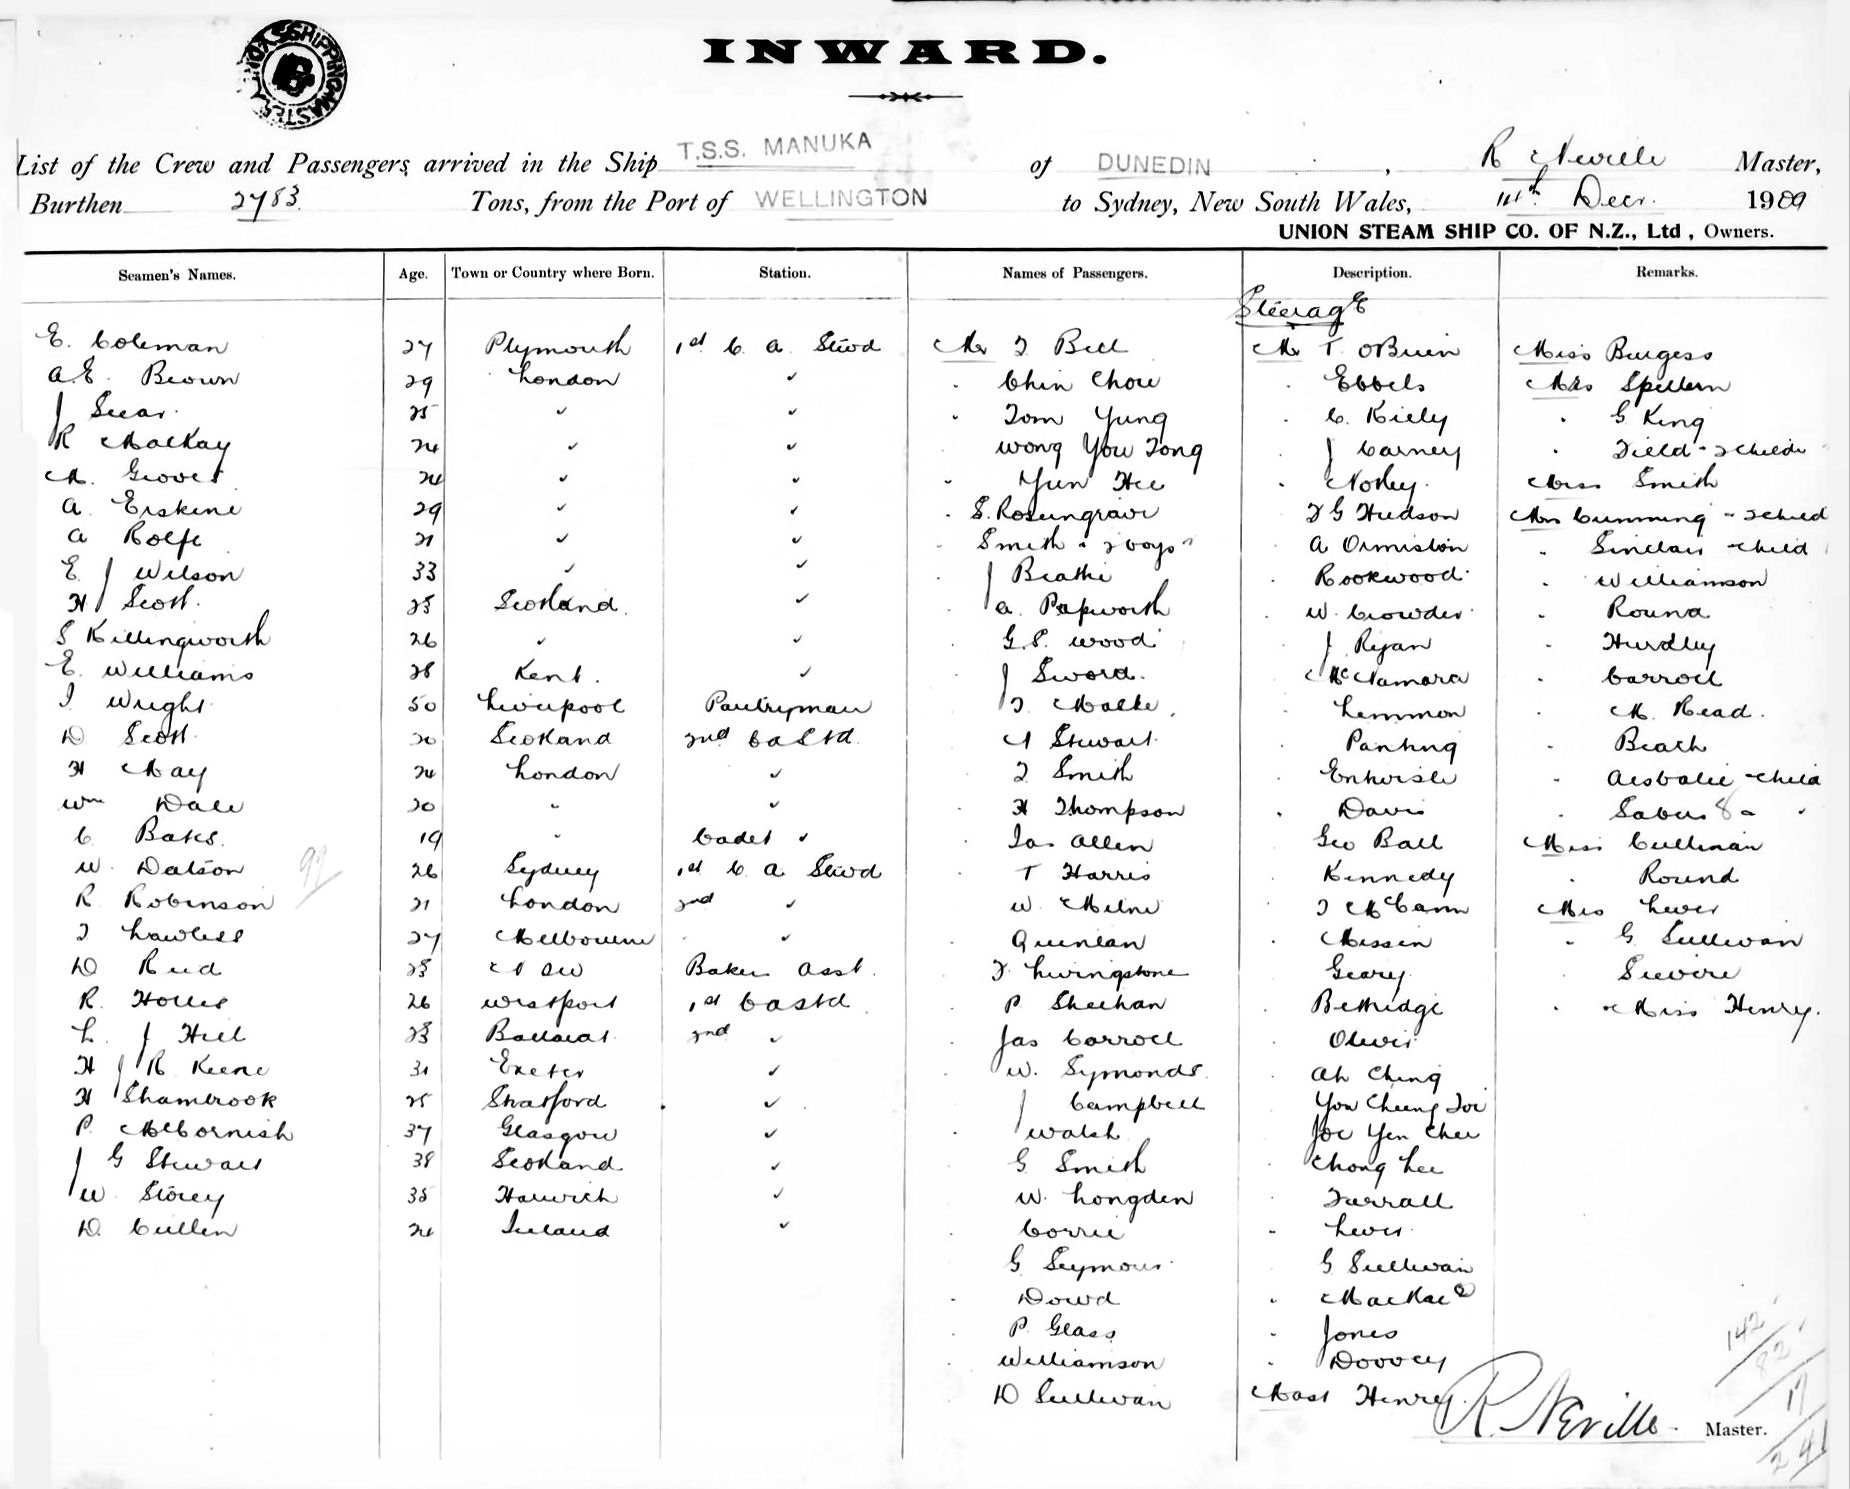 SHIPPING MASTER
INWARD.
List of the Crew and Passengers, arrived in the Ship T.S.S. MANUKA of DUNEDIN, R Neville Master,
Burthen 2783 Tons, from the Port of WELLINGTON to Sydney, New South Wales, 14th Decr. 1909
UNION STEAM SHIP CO. OF N.Z., Ltd, Owners.
Seamen's Names. Age. Town or Country where Born. Station. Names of Passengers. Description. Remarks.
Steerage
E. Coleman 27 Plymouth 1st C. A. Stwd Mr T Bell Mr T. OBrien Miss Burgess
A.E. Brown 29 London ✓ Chin Chow Ebbels Mrs Spillern
J Sear 25 ✓ ✓ Tom Yung C. Kiely G King
R Mackay 24 ✓ ✓ Wong You Tong J Carney Field - 2 childn
M. Groves 24 ✓ ✓ Yun Hee Notley Miss Smith
A. Erskine 29 ✓ ✓ S. Rosengrave F G Hudson Mrs Cumming - 2 child
A Rolfe 21 ✓ ✓ Smith & 2 boys A Ormiston Sinclair - child
E. J Wilson 33 ✓ ✓ J Beattie Rookwood Williamson
H J Scott 25 Scotland ✓ A. Papworth W. Crowder Round
S Killingworth 26 ✓ ✓ G.P. Wood J Ryan Hurdley
E. Williams 28 Kent. ✓ J Sword. McNamara Carroll
J. Wright 50 Liverpool Pantryman Lemmon M. Read.
D Scott 20 Scotland 2nd Ca Std N Stewart Panting Beach
H May 24 London ✓ T Smith Entwisle - child
Wm Dale 20 " ✓ H Thompson Davis
C Baks. 19 " Cadet ✓ Jas Allen Geo Ball Miss Cullinan
W. Datson 92 26 Sydney 1st C. A Stwd T Harris Kennedy Round
R. Robinson 21 London 2nd ✓ W. Milne J McCann Mrs Lewis
J Lawless 27 Melbourne ✓ Quinlan Missin G. Sullivan
D Reid 23 N S W Baker Asst. J. Livingstone Geary
R. Hollis 26 Westport 1st Ca Std P Sheehan Bethridge & Miss Henry.
L. J Hill 23 Ballarat 2nd ✓ Jas Carroll Oliver
H J R Keene 31 Exeter ✓ W. Symonds Ah Ching
H Shambrook 25 Stratford ✓ J Campbell You Cheung Joi
P. McCornish 37 Glasgow ✓ Walsh Joe Yen Chee
J G Stewart 38 Scotland ✓ G. Smith Chong Lee
W. Storey 35 Harwich ✓ W. Longden Farrall
D. Cullen 24 Ireland ✓ Corrie Lewis
G. Seymour G Sullivan
Dowd MacRae
P. Glass Jones
Williamson Doovey
D Sullivan Mast Henry.
142
82
17
241
R. Neville Master.